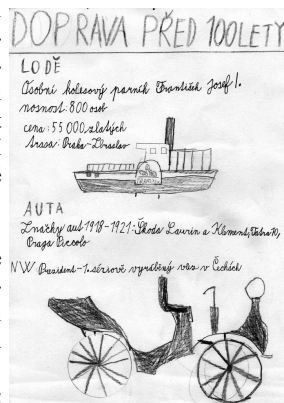 DOPRAVA PŘED 100 LETY
LODĚ
Osobní kolesový parník František Josef I.
nosnost: 800 osob
cena: 55 000 zlatých
trasa: Praha - Zbraslav
AUTA
Značky aut 1918-1921: Škoda Laurin a Klement, Tatra 10,
Praga Piccolo
NW Präsident - 1. sériově vyráběný vůz v Čechách